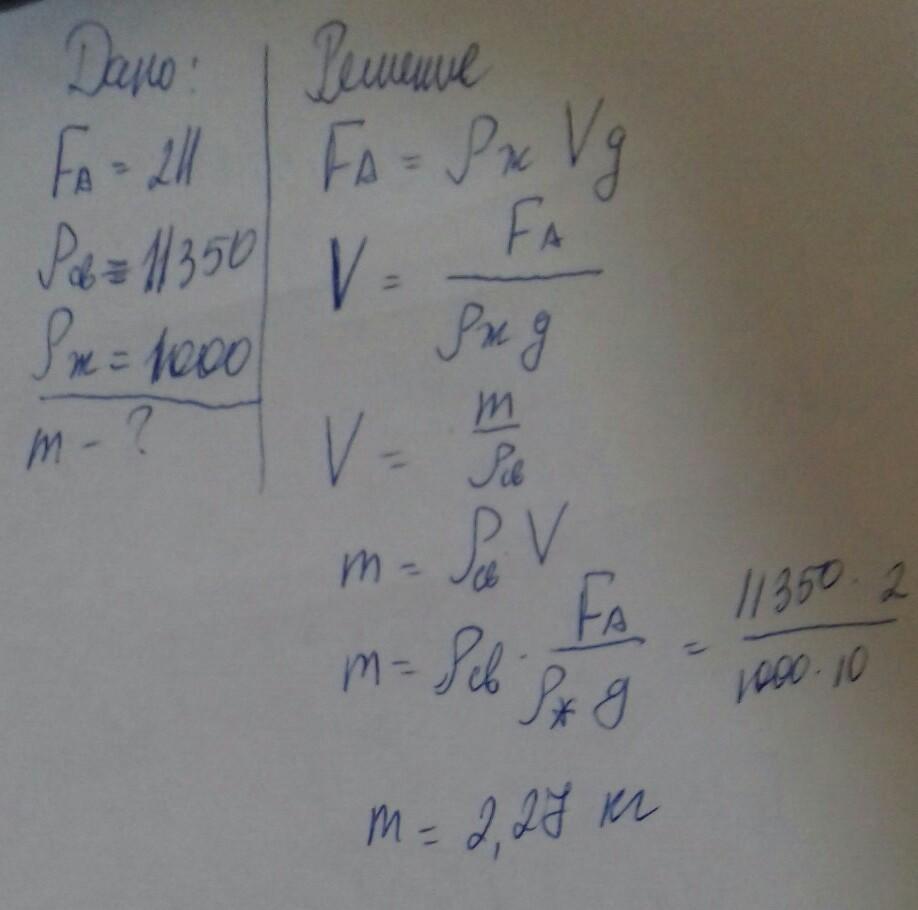 Дано:
F_A = 2Н
ρ_св = 11350
ρ_ж = 1000
m - ?
Решение
F_A = ρ_ж V g
V = F_A / ρ_ж g
V = m / ρ_св
m = ρ_св V
m = ρ_св · F_A / ρ_ж g = 11350 · 2 / 1000 · 10
m = 2,27 кг